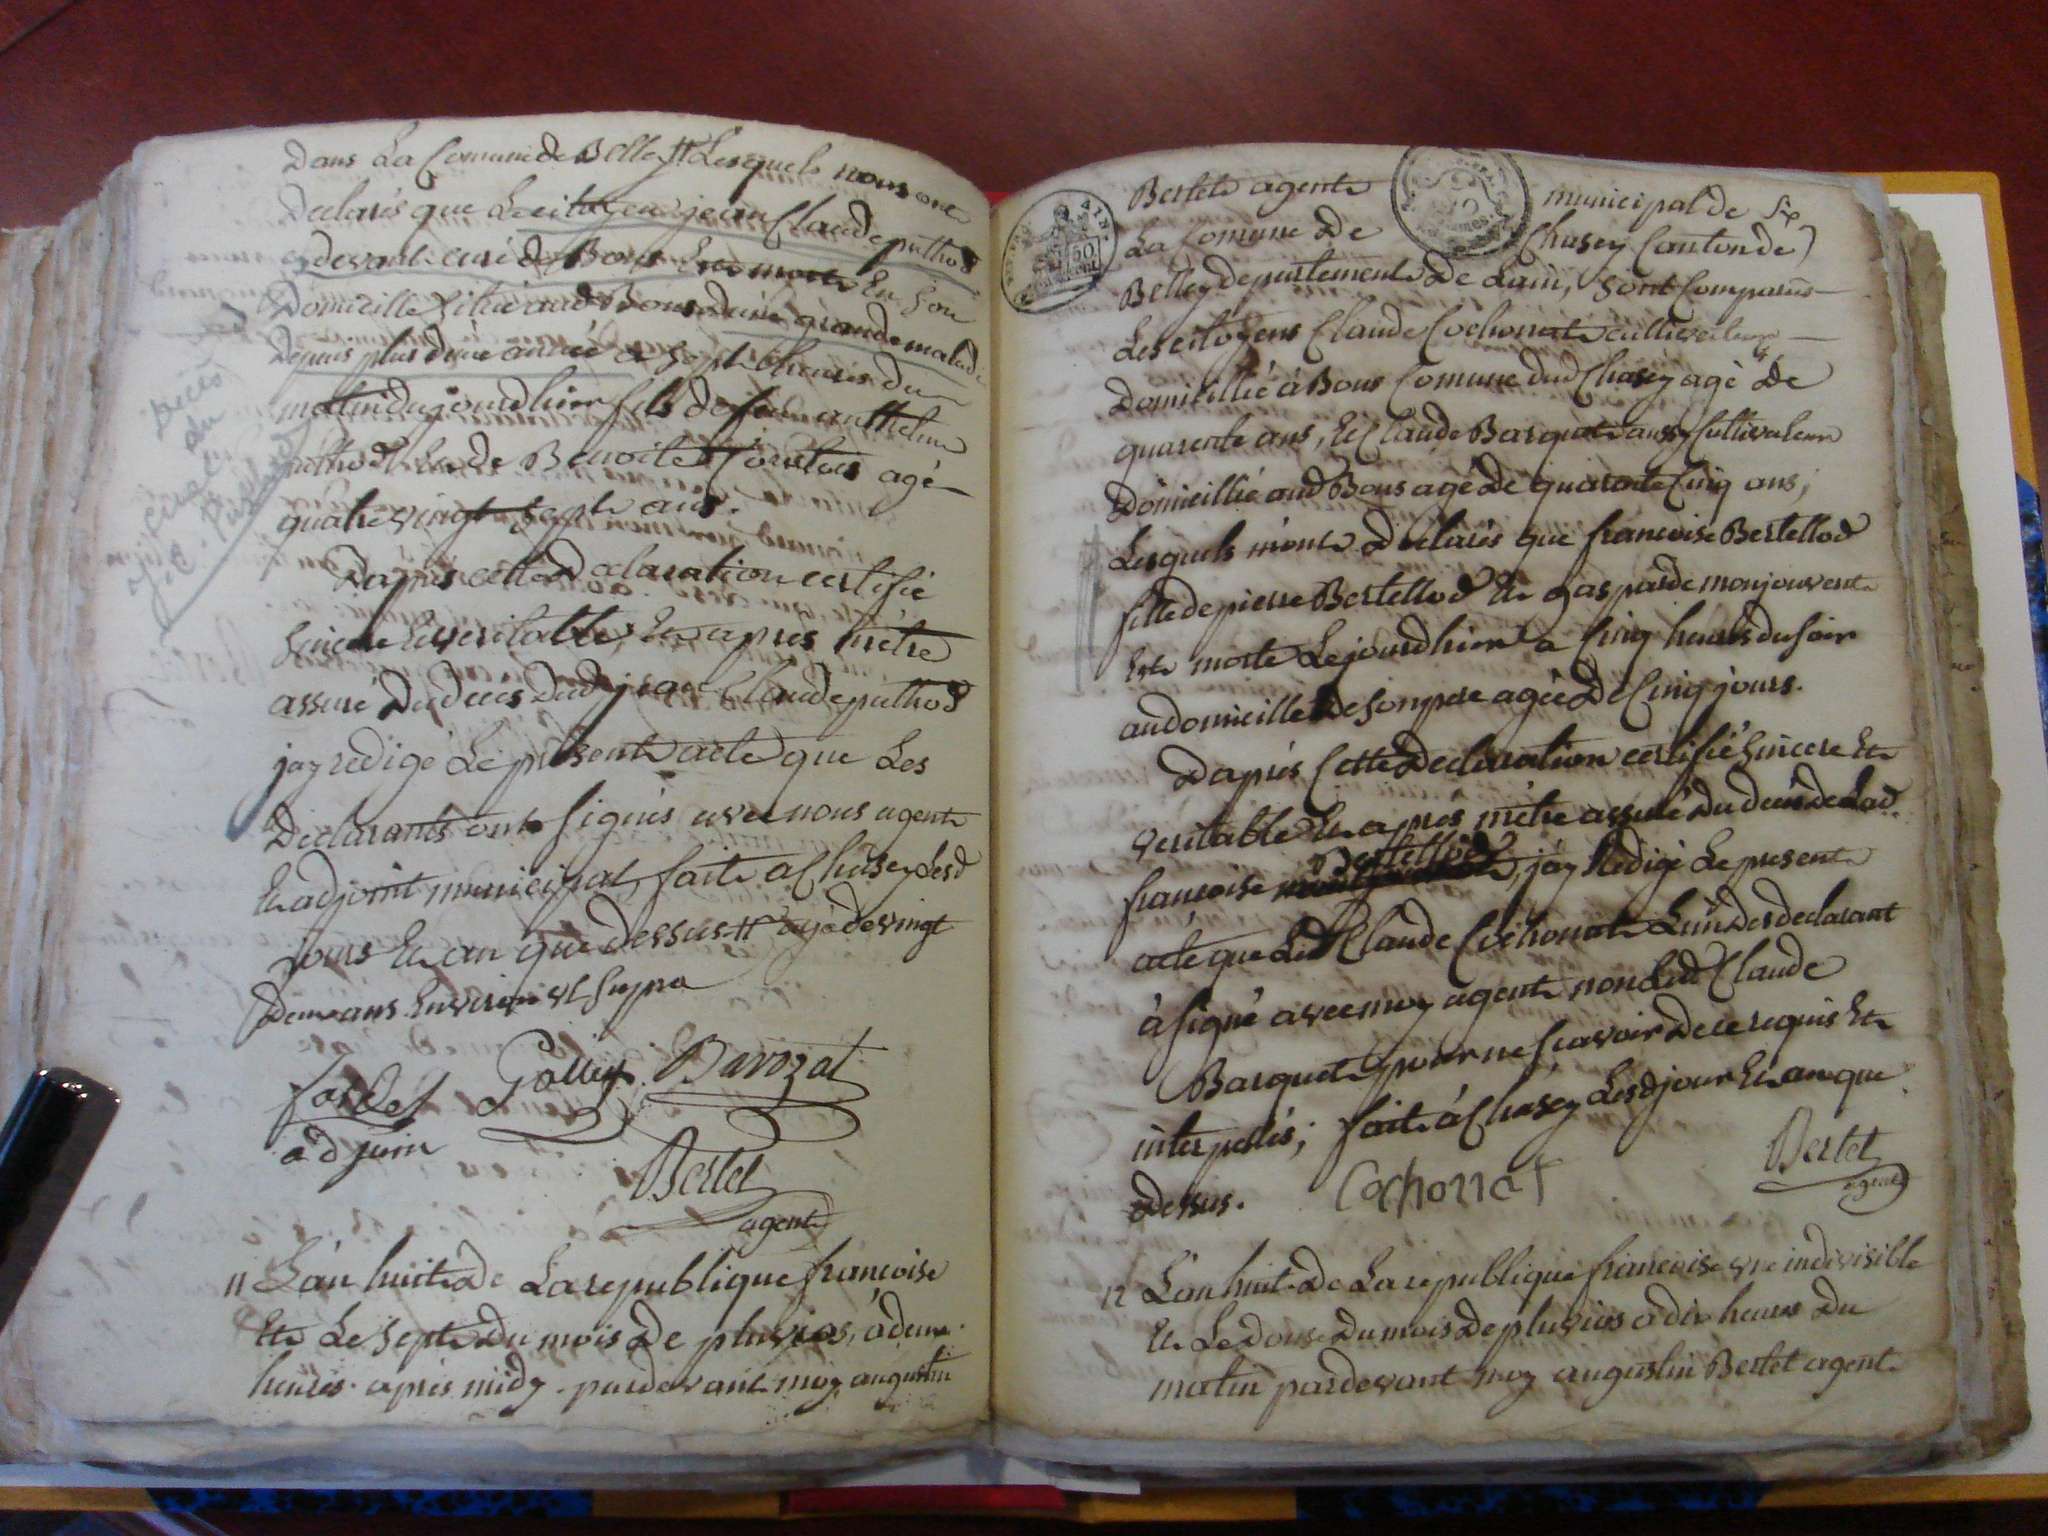 Dans La Comune de Belley # Lesquels nous ont
Declarés que Le citoyen jean Claude puthod
cydevant curé de Bons Est mort En Son
Domicille Situé aud Bons d'une grande maladie
Depuis plus d'une année a Sept heures du
matin du jourdhier fils de feu anthelme
puthod Et de Benoite Courtois agé
quatre vingt Septe ans.
Décès
du
Curé
J. C. Puthod
Dapres cette Declaration certifié
Sincere Et veritable, Et apres m'être
assuré Du deces Dud jean Claude puthod
jay redigé Le present acte que Les
Declarants ont Signés avec nous agent
Et adjoint municipal, fait a Chasey Lesd
jours Et an que dessus # agé de vingt
deux ans Environ ut Supra
Gallix Barozat
adjoin
Bertet
agent
11 L'an huit de La republique francoise
Et Le Sept Du mois De pluvios, à deux
heures après midy pardevant moy augustin
Bertet agent municipal de
La Comune De Chasey Canton de
Belley departement De Lain, Sont Comparus
Les citoyens Claude Cochonat cultivateur
Domicillié à Bons Comune dud Chasey agé de
quarente ans, Et Claude Barquet aussy Cultivateur
Domicillié aud Bons agé de quarante Cinq ans;
Lesquels m'ont Declarés que francoise Bertellod
fille de pierre Bertellod Et gasparde monjouvent
Est morte Le jourdhier a Cinq heures du Soir
au domicille De Son pere agée De Cinq jours.
Daprés Cette Declaration certifié Sincere Et
veritable Et aprés m'être assuré Du deces de Lad
Bertellod
francoise, jay Redigé Le present
acte que Led Claude Cochonat Lun des declarant
à Signé avec moy agent non Led Claude
Barquet pour ne Scavoir De ce requis Et
interpellés; fait à Chasey Lesd jour Et an que
dessus. Cochonat Bertet
agent
12 L'an huit de La republique francoise une indivisible
Et Le douse Du mois De pluvios a dix heures Du
matin pardevant moy augustin Bertet agent